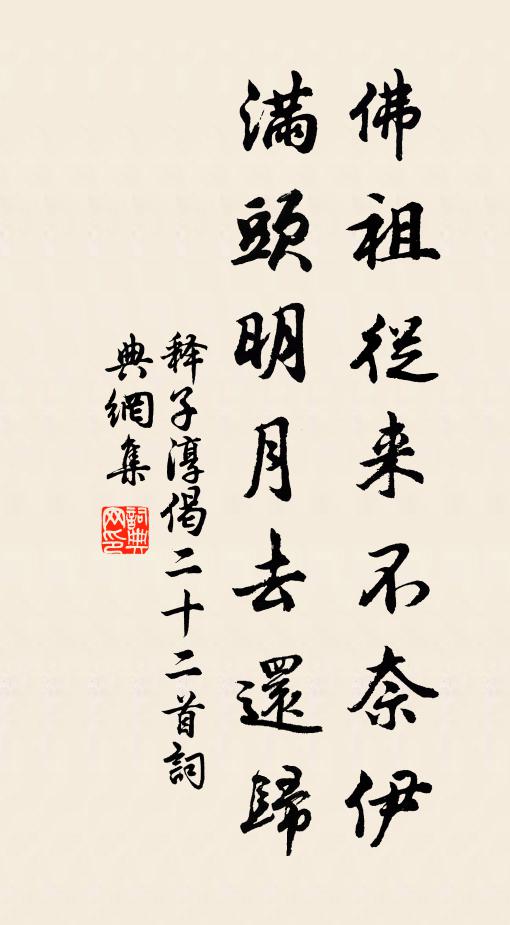 佛祖從来不奈伊
滿頭明月去還歸
释子淳偈二十二首詞
典網集
詞典
网印